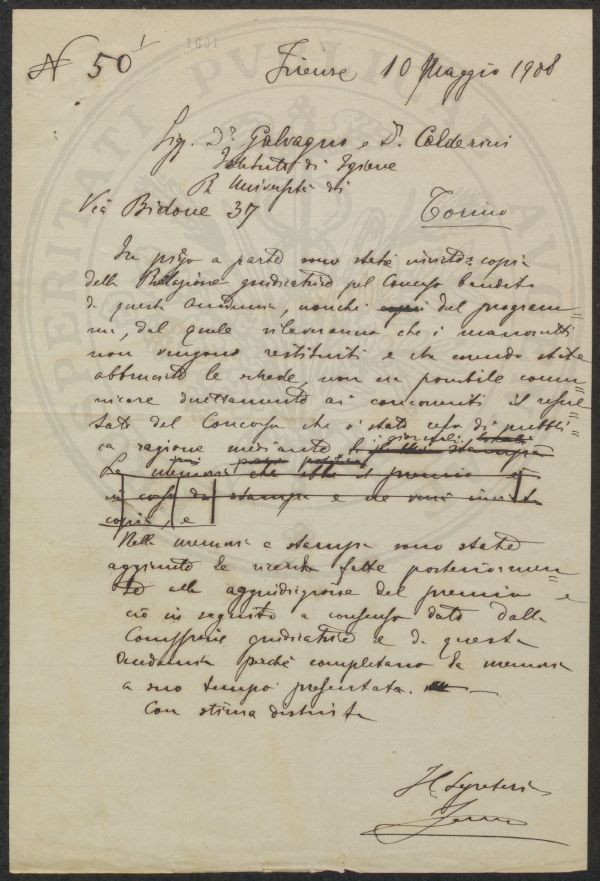 N 50 1
Firenze 10 Maggio 1908
Sigg. Dr. Galvagno e Dr. Calderini
Istituto di Igiene
R. Università di
Via Bidone 37 Torino
In piego a parte sono state inviate copia
della Relazione giudicatrice pel Concorso bandito
da questa Accademia, nonchè copia del program=
ma, dal quale rileveranno che i manoscritti
non vengono restituiti e che essendo state
abbruciate le schede, non era possibile comu=
nicare direttamente ai concorrenti il resul=
tato del Concorso che è stato reso di pubbli=
ca ragione mediante giornali
La memoria che ebbe il premio è
in corso di stampa e ne verrà inviata
copia, e
Nella memoria a stampa sono state
aggiunte le ricerche fatte posteriormen=
te alla aggiudicazione del premio e
ciò in seguito a consenso dato dalla
Commissione giudicatrice e da questa
Accademia perchè completano la memoria
a suo tempo presentata.
Con stima distinta
Il Segretario